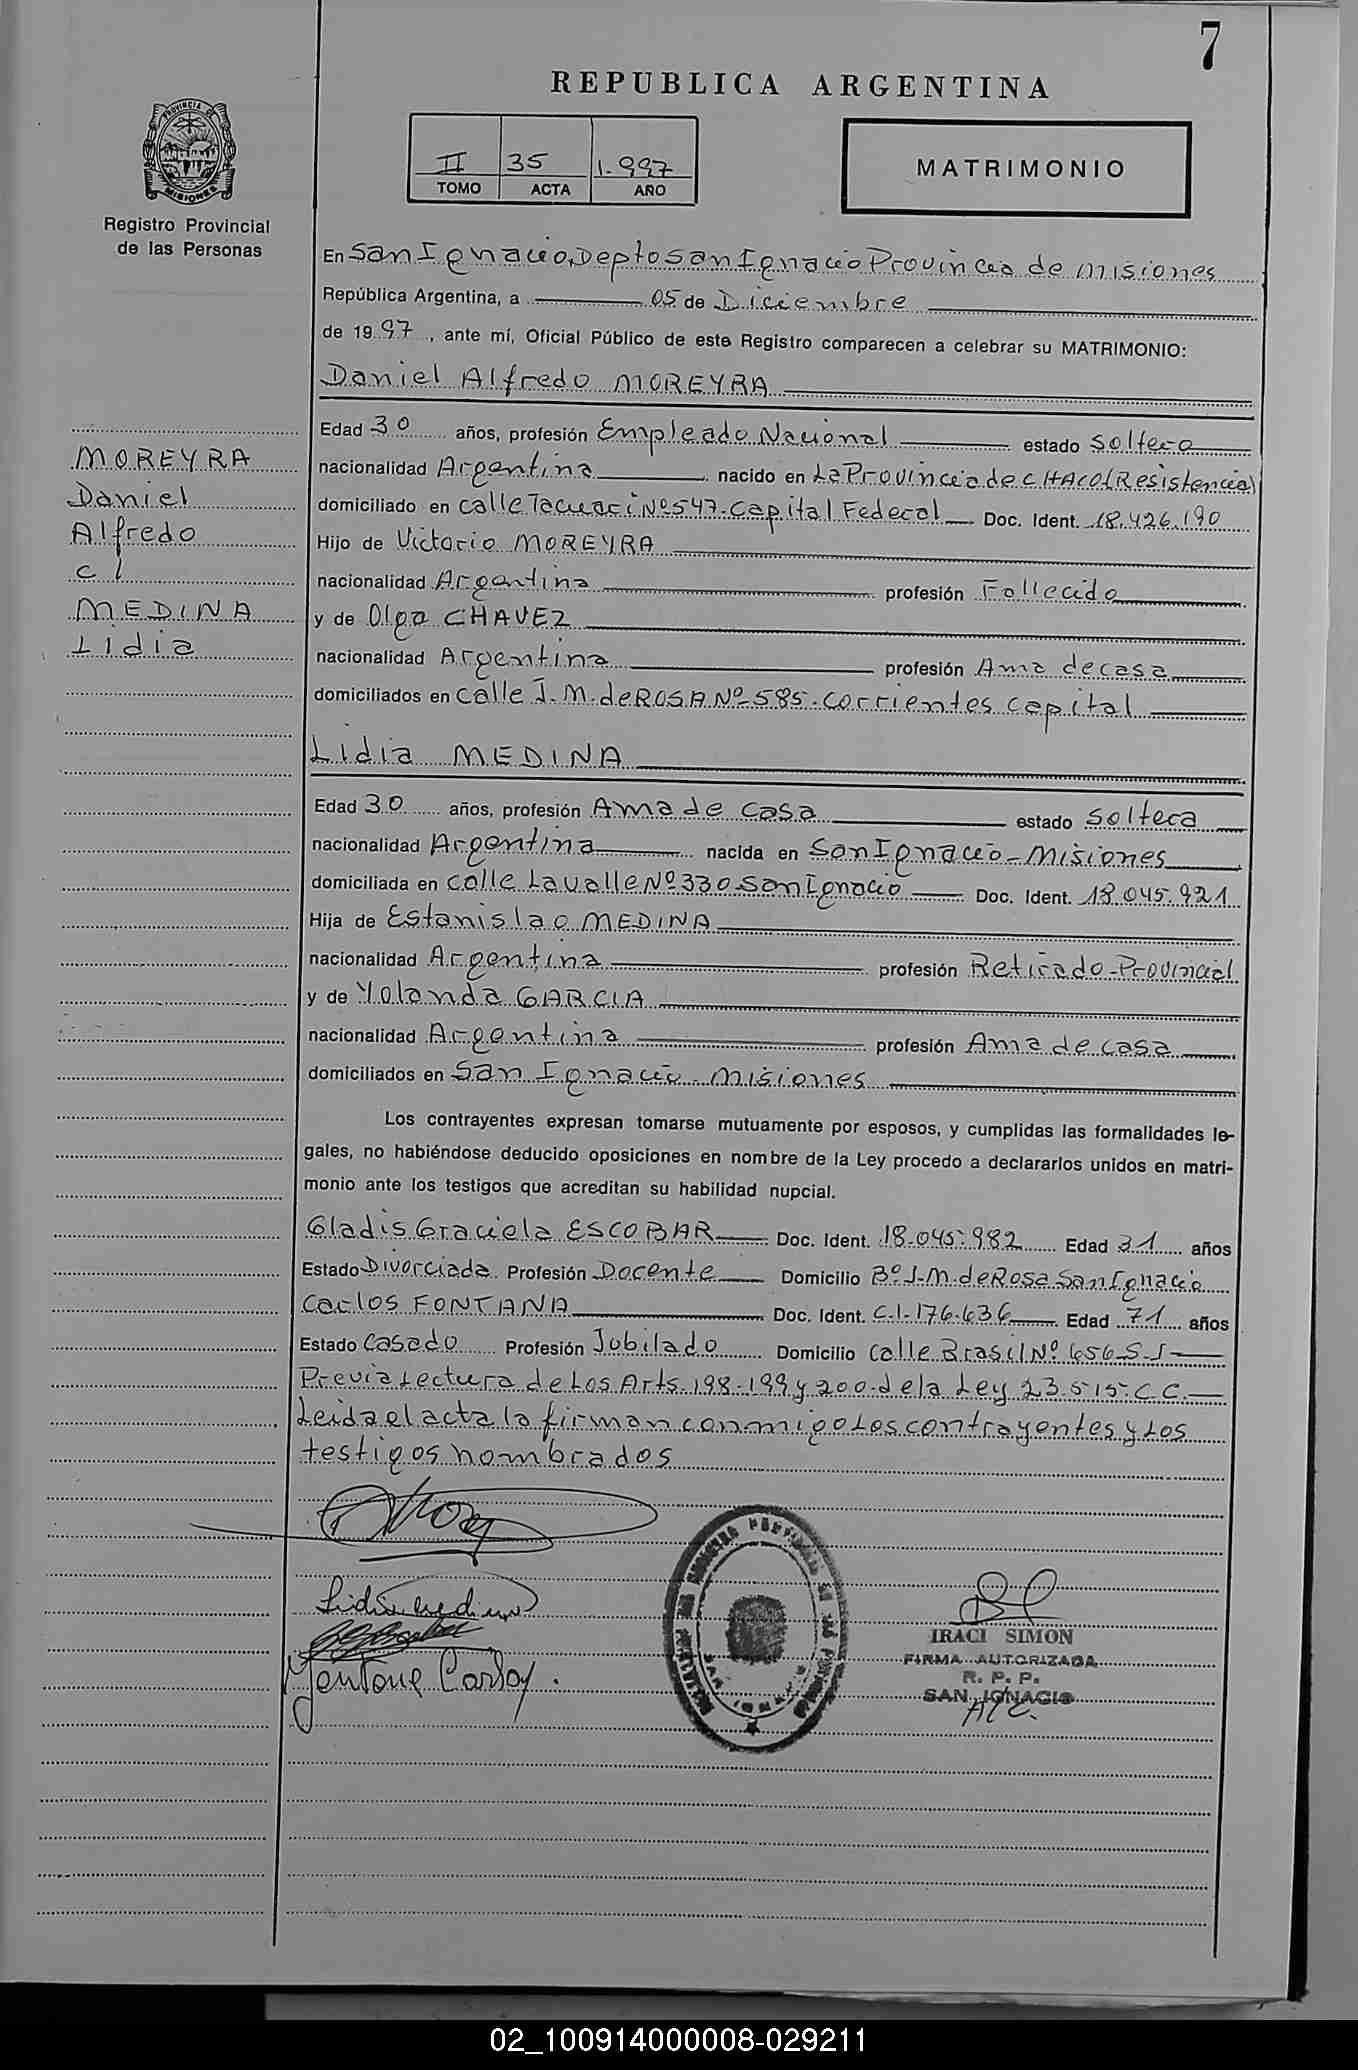 7
REPUBLICA ARGENTINA
II 35 1.997
TOMO ACTA AÑO
MATRIMONIO
PROVINCIA DE MISIONES
Registro Provincial
de las Personas
En San Ignacio, Depto San Ignacio Provincia de Misiones
República Argentina, a 05 de Diciembre
de 1997, ante mí, Oficial Público de este Registro comparecen a celebrar su MATRIMONIO:
Daniel Alfredo MOREYRA
Edad 30 años, profesión Empleado Nacional estado Soltero
nacionalidad Argentina nacido en La Provincia de CHACO (Resistencia)
domiciliado en calle Tacuari Nº 547-Capital Federal Doc. Ident. 18.426.190
Hijo de Victorio MOREYRA
nacionalidad Argentina profesión Fallecido
y de Olga CHAVEZ
nacionalidad Argentina profesión Ama de casa
domiciliados en calle J.M. de ROSA Nº 585-Corrientes Capital
MOREYRA
Daniel
Alfredo
c/
MEDINA
Lidia
Lidia MEDINA
Edad 30 años, profesión Ama de casa estado Soltera
nacionalidad Argentina nacida en San Ignacio-Misiones
domiciliada en calle Lavalle Nº 330 San Ignacio Doc. Ident. 18.045.921
Hija de Estanislao MEDINA
nacionalidad Argentina profesión Retirado-Provincial
y de Yolanda GARCIA
nacionalidad Argentina profesión Ama de casa
domiciliados en San Ignacio-Misiones
Los contrayentes expresan tomarse mutuamente por esposos, y cumplidas las formalidades le-
gales, no habiéndose deducido oposiciones en nombre de la Ley procedo a declararlos unidos en matri-
monio ante los testigos que acreditan su habilidad nupcial.
Gladis Graciela ESCOBAR Doc. Ident. 18.045.982 Edad 31 años
Estado Divorciada Profesión Docente Domicilio Bº J.M. de Rosa San Ignacio
Carlos FONTANA Doc. Ident. C.I-176.636 Edad 71 años
Estado Casado Profesión Jubilado Domicilio Calle Brasil Nº 656 S-I
Previa Lectura de Los Arts. 198-199 y 200 de la Ley 23.515-C.C.
Leida el acta la firman conmigo Los contrayentes y Los
testigos nombrados
Lidia Medina
Carlos
IRACI SIMON
FIRMA AUTORIZADA
R. P. P.
SAN IGNACIO
A/C.
02_100914000008-029211